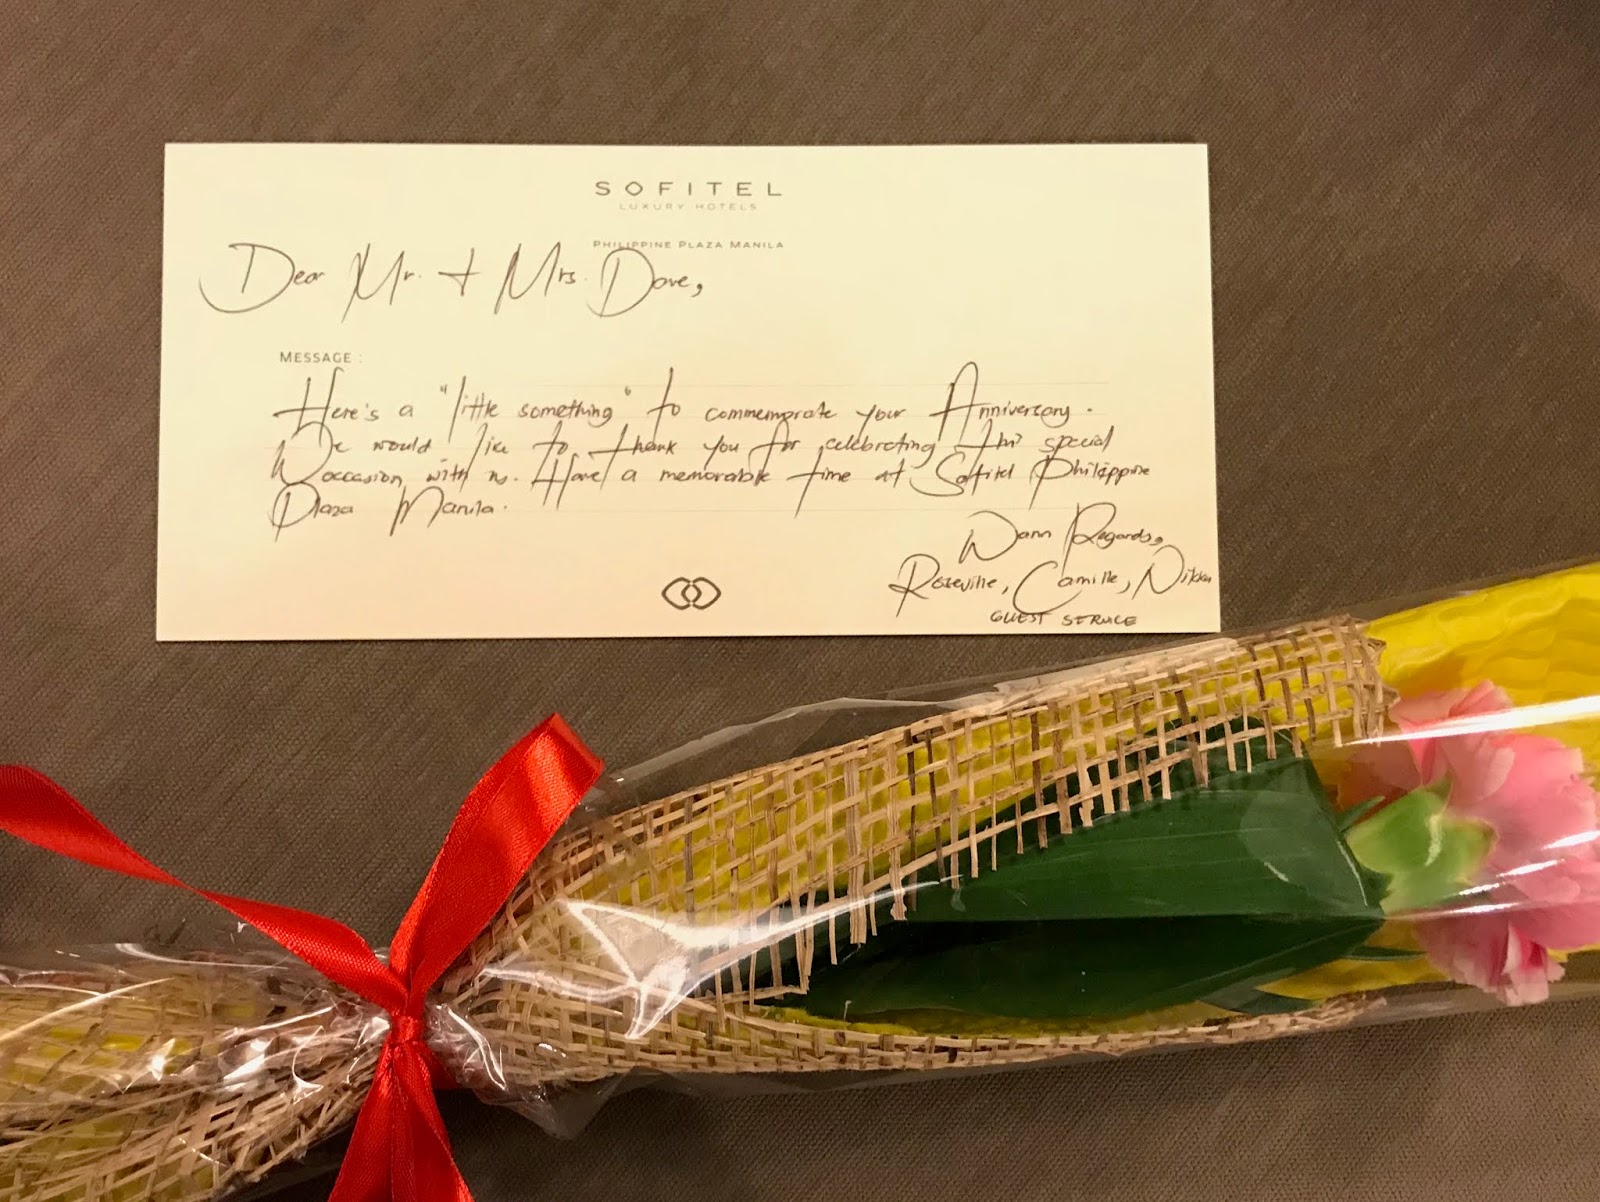 SOFITEL
LUXURY HOTELS
PHILIPPINE PLAZA MANILA
Dear Mr. + Mrs. Dove,
MESSAGE :
Here's a "little something" to commemorate your Anniversary.
We would like to thank you for celebrating this special
occasion with us. Have a memorable time at Sofitel Philippine
Plaza Manila.
Warm Regards,
Roseville, Camille, Nikka
GUEST SERVICE